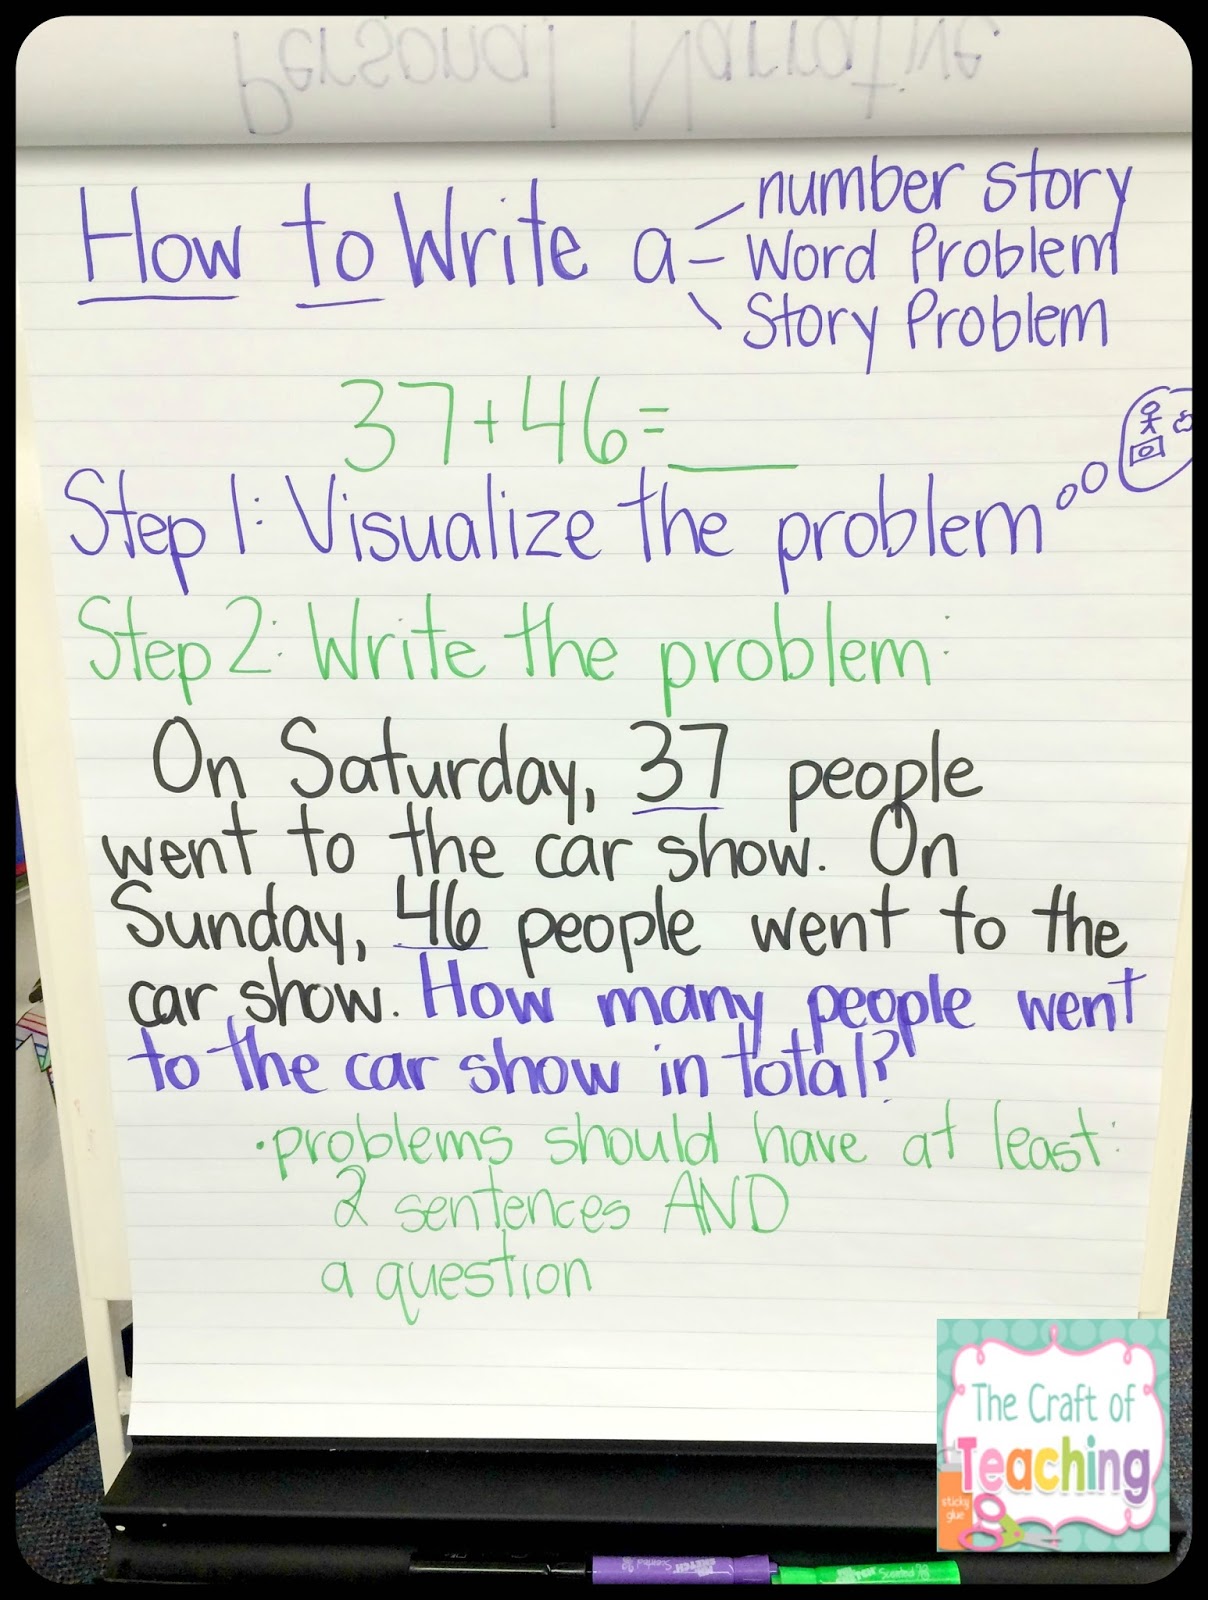 Personal Narrative
How to Write a
number story
Word Problem
Story Problem
37+46=
Step 1: Visualize the problem
Step 2: Write the problem:
On Saturday, 37 people
went to the car show. On
Sunday, 46 people went to the
car show. How many people went
to the car show in total?
•problems should have at least:
2 sentences AND
a question
The Craft of
Teaching
sticky
glue
Scented
SKETCH
Scented